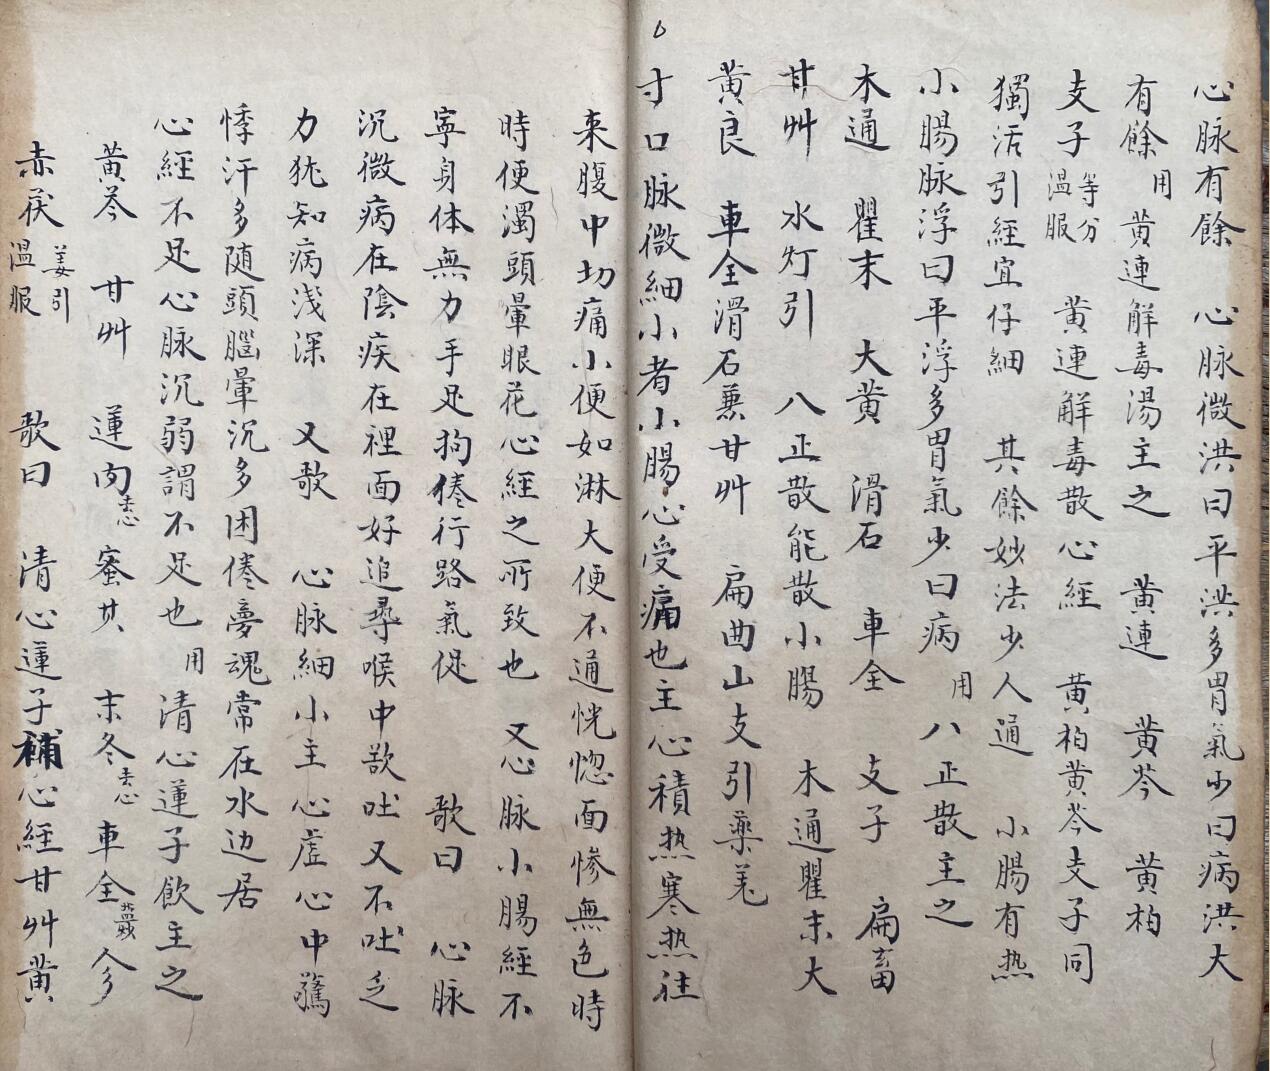 心脉有餘 心脉微洪曰平洪多胃氣少曰病洪大
有餘用黄連解毒湯主之 黄連 黄芩 黄柏
支子等分温服 黄連解毒散心經 黄柏黄芩支子同
獨活引經宜仔細 其餘妙法少人通 小腸有热
小腸脉浮曰平浮多胃氣少曰病 用八正散主之
木通 瞿末 大黄 滑石 車全 支子 扁畜
甘艸 水灯引 八正散能散小腸 木通瞿末大
黄良 車全滑石兼甘艸 扁曲山支引藥羌
寸口脉微細小者小腸心受痛也主心積热寒热往
来腹中切痛小便如淋大便不通恍惚面惨無色時
時便濁頭暈眼花心經之所致也 又心脉小腸經不
寧身体無力手足拘倦行路氣促 歌曰 心脉
沉微病在陰疾在裡面好追尋喉中欲吐又不吐乏
力犹知病浅深 又歌 心脉細小主心虚心中驚
悸汗多随頭腦暈沉多困倦夢魂常在水边居
心經不足心脉沉弱謂不足也 用清心蓮子飲主之
黄芩 甘艸 蓮肉去心 蜜芪 末冬去心 車全 参
赤茯 姜引温服 歌曰 清心蓮子補心經甘艸黄
6